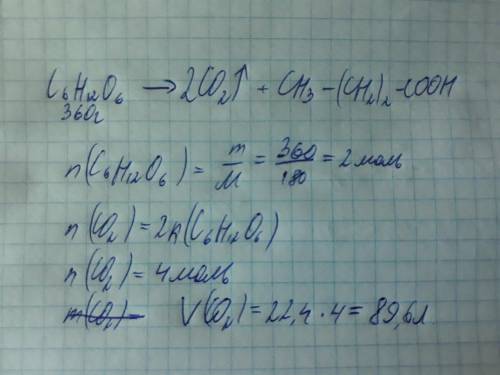 C₆H₁₂O₆ → 2CO₂↑ + CH₃ – (CH₂)₂ – COOH
360г
n(C₆H₁₂O₆) = m/M = 360/180 = 2 моль
n(CO₂) = 2n(C₆H₁₂O₆)
n(CO₂) = 4 моль
m(CO₂) – V(CO₂) = 22,4 · 4 = 89,6 л